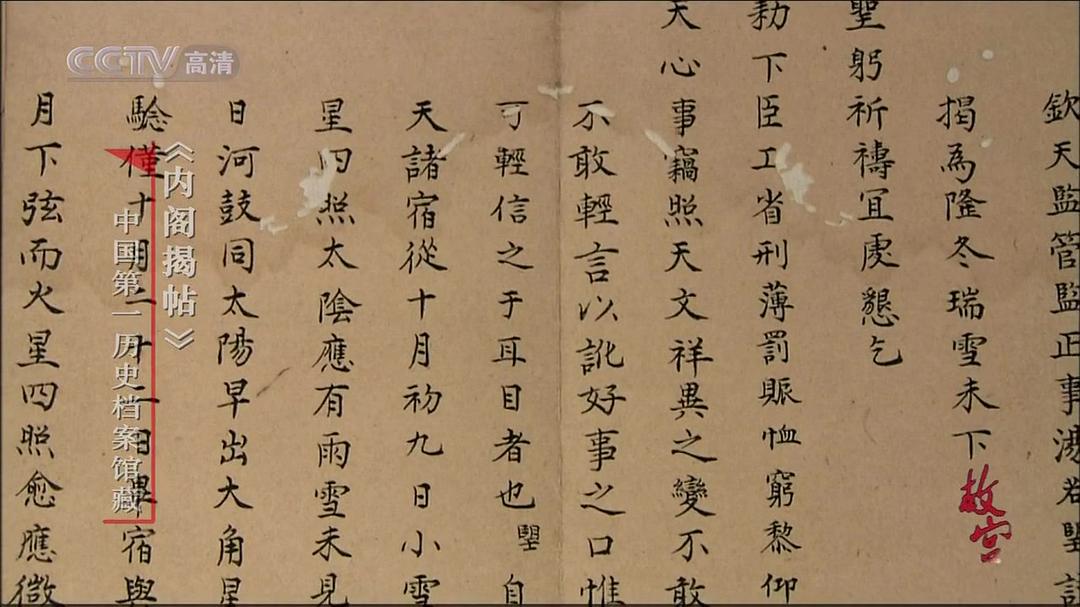 欽天監管監正事湯若望謹
揭為隆冬瑞雪未下
聖躬祈禱宜虔懇乞
勅下臣工省刑薄罰賑恤窮黎仰
天心事竊照天文祥異之變不敢
不敢輕言以訛好事之口惟
可輕信之于耳目者也望自
天諸宿從十月初九日小雪
星四照太陰應有雨雪未見
日河鼓同太陽早出大角星
驗僅十月二十二日畢宿與
月下弦而火星四照愈應微
CCTV高清
《内阁揭帖》
中国第一历史档案馆藏
故宫